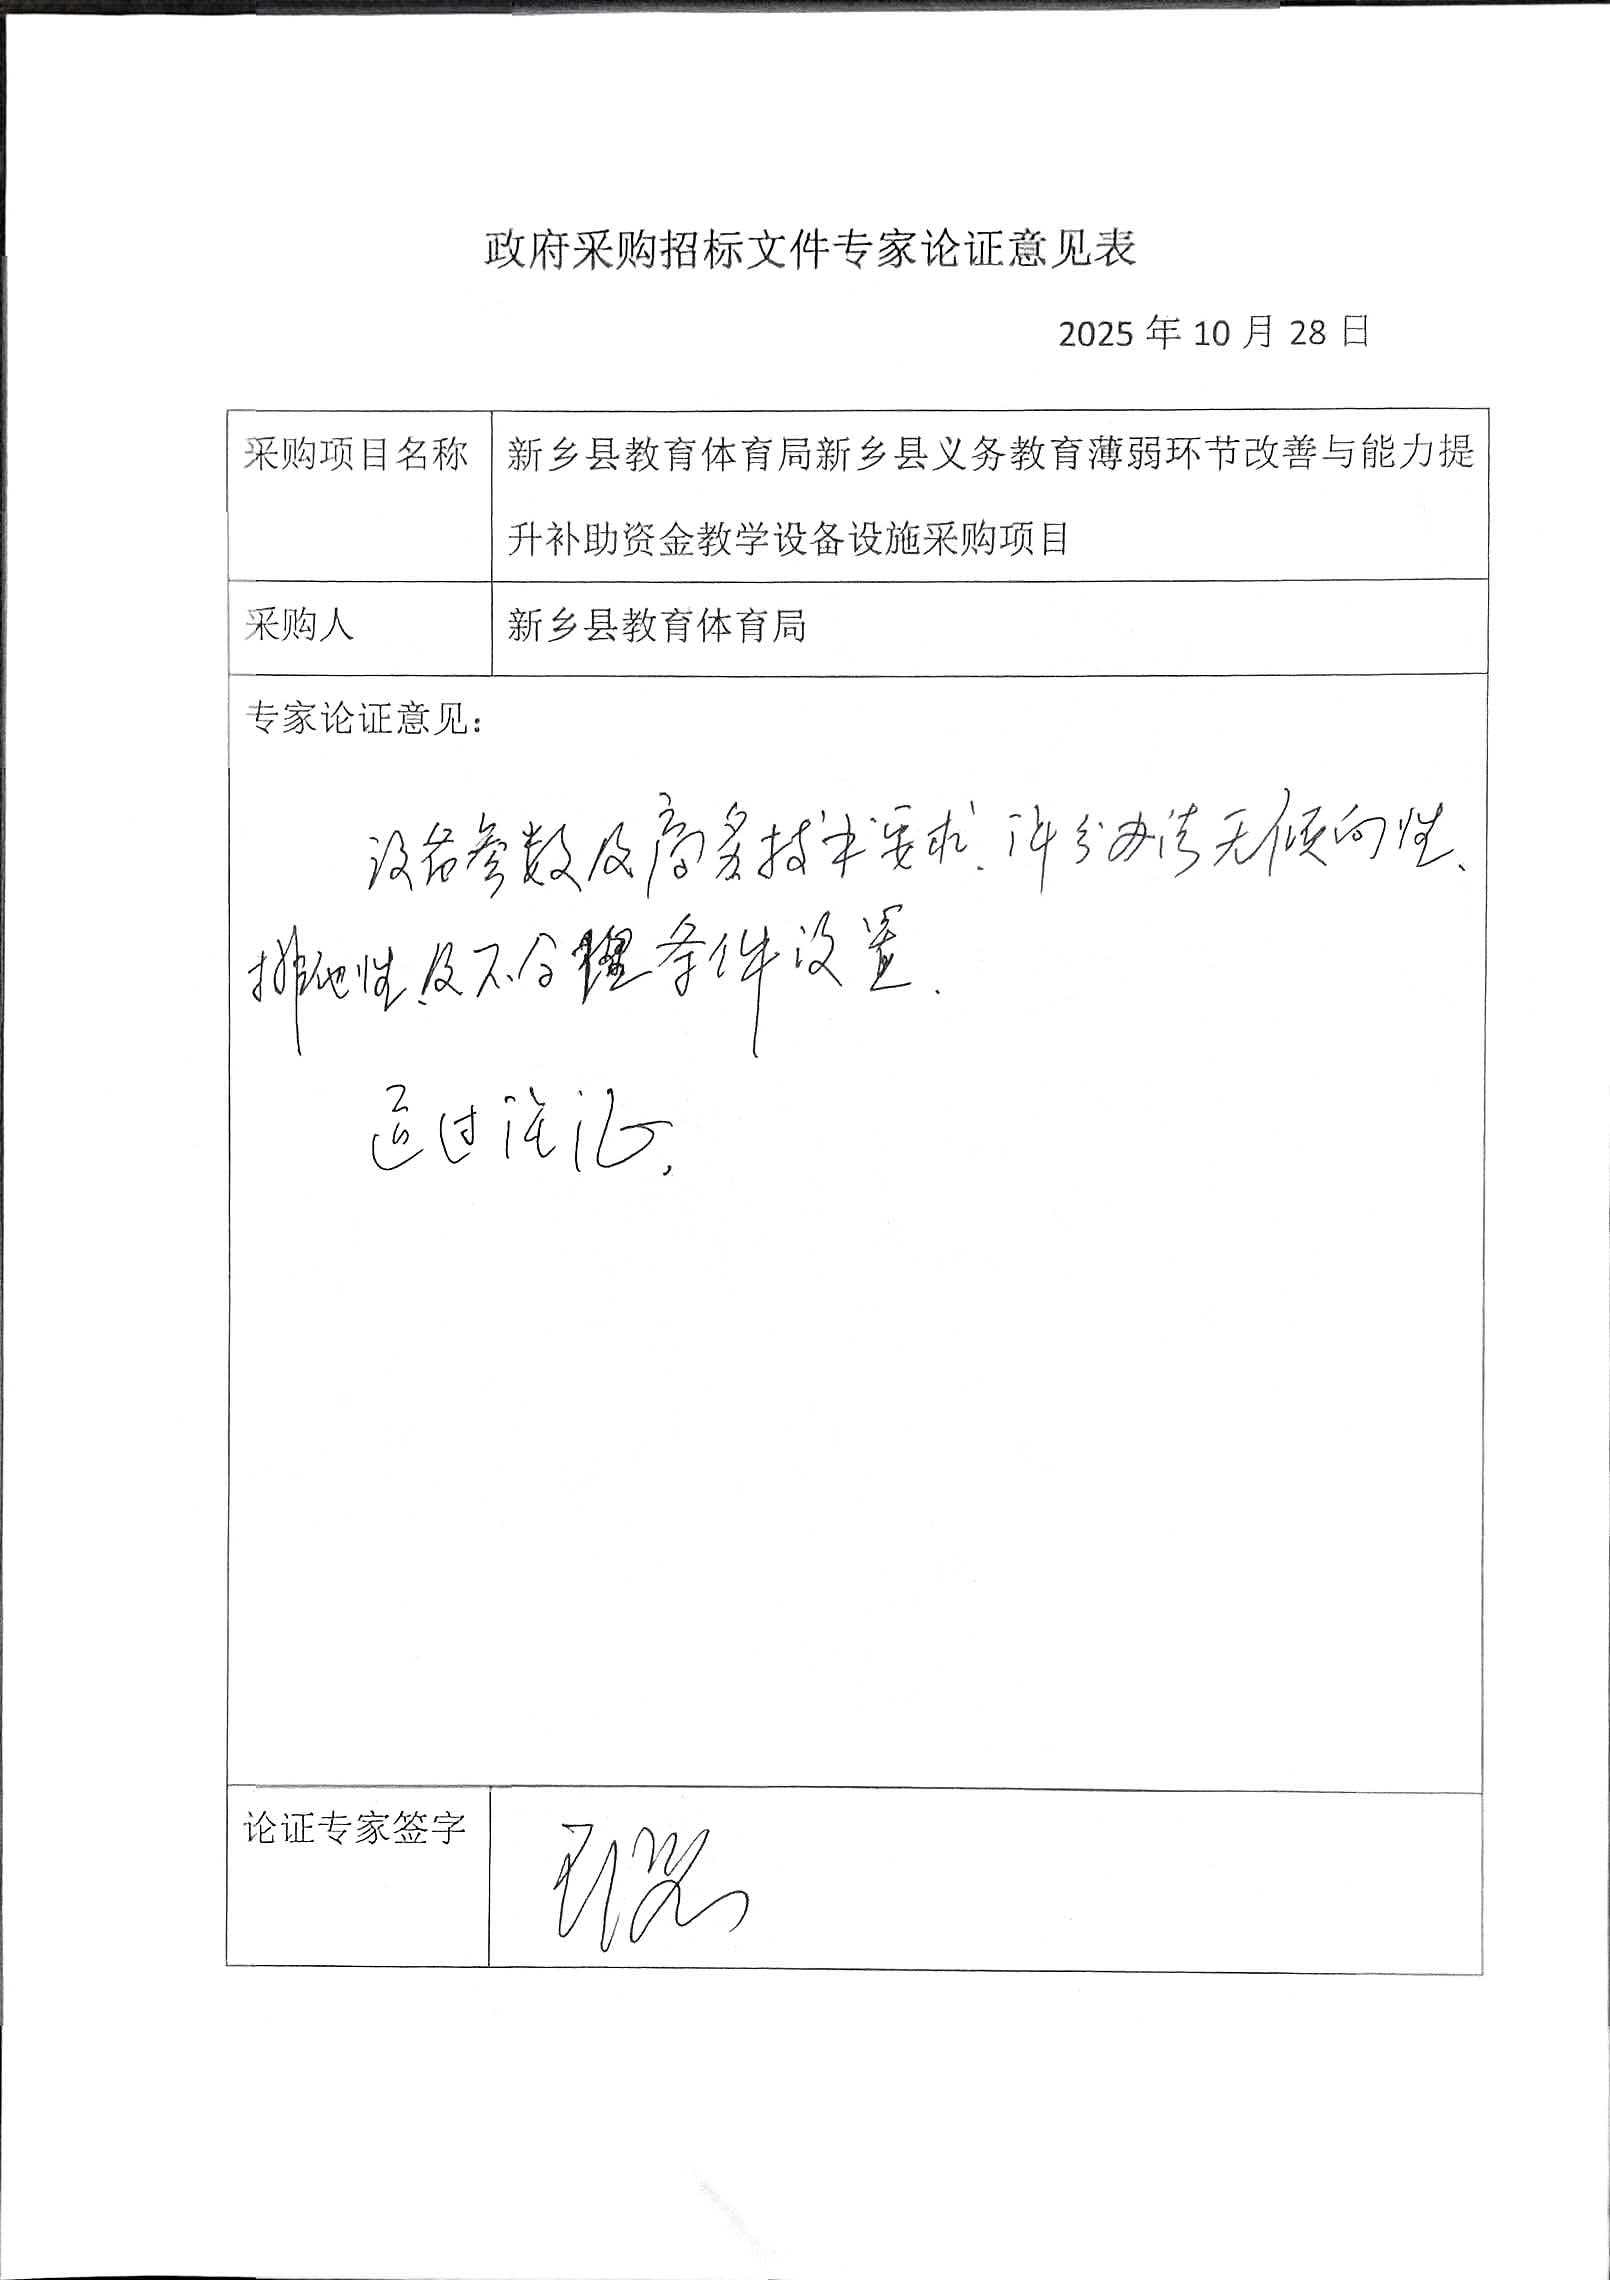 政府采购招标文件专家论证意见表
2025 年 10 月 28 日
采购项目名称
新乡县教育体育局新乡县义务教育薄弱环节改善与能力提
升补助资金教学设备设施采购项目
采购人
新乡县教育体育局
专家论证意见：
设备参数及商务技术要求、评分办法无倾向性、
排他性及不合理条件设置.
通过论证.
论证专家签字